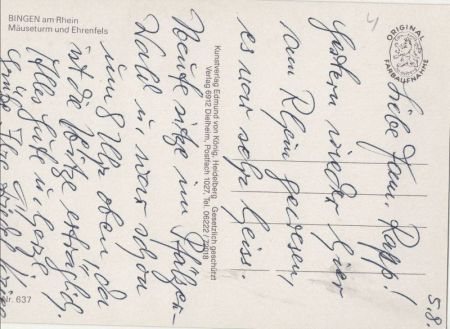 BINGEN am Rhein
Mäuseturm und Ehrenfels
ORIGINAL
FARBAUFNAHME
Kunstverlag Edmund von König, Heidelberg Gesetzlich geschützt
Verlag 6912 Dielheim, Postfach 1027, Tel. 06222 /
Nr. 637
5.8
Liebe Fam. Rapp!
Gestern wieder hier
am Rhein gewesen,
es war sehr heiss.
Heute sitze im Pfälzer-
Wald u. war schon
um 8 Uhr oben, da
ist die Hitze erträglich.
Alles Gute u. herzl.
Grüße